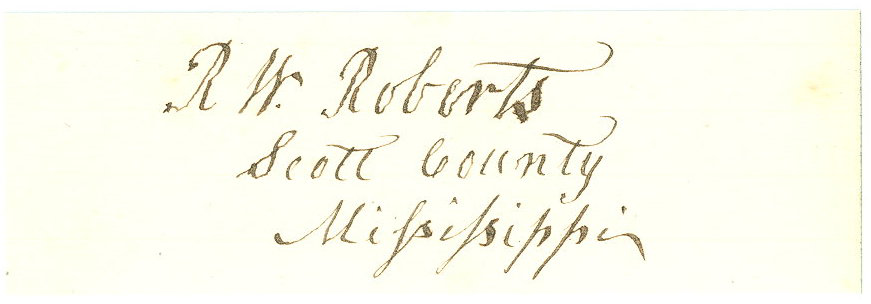 R W. Roberts
Scott County
Mississippi